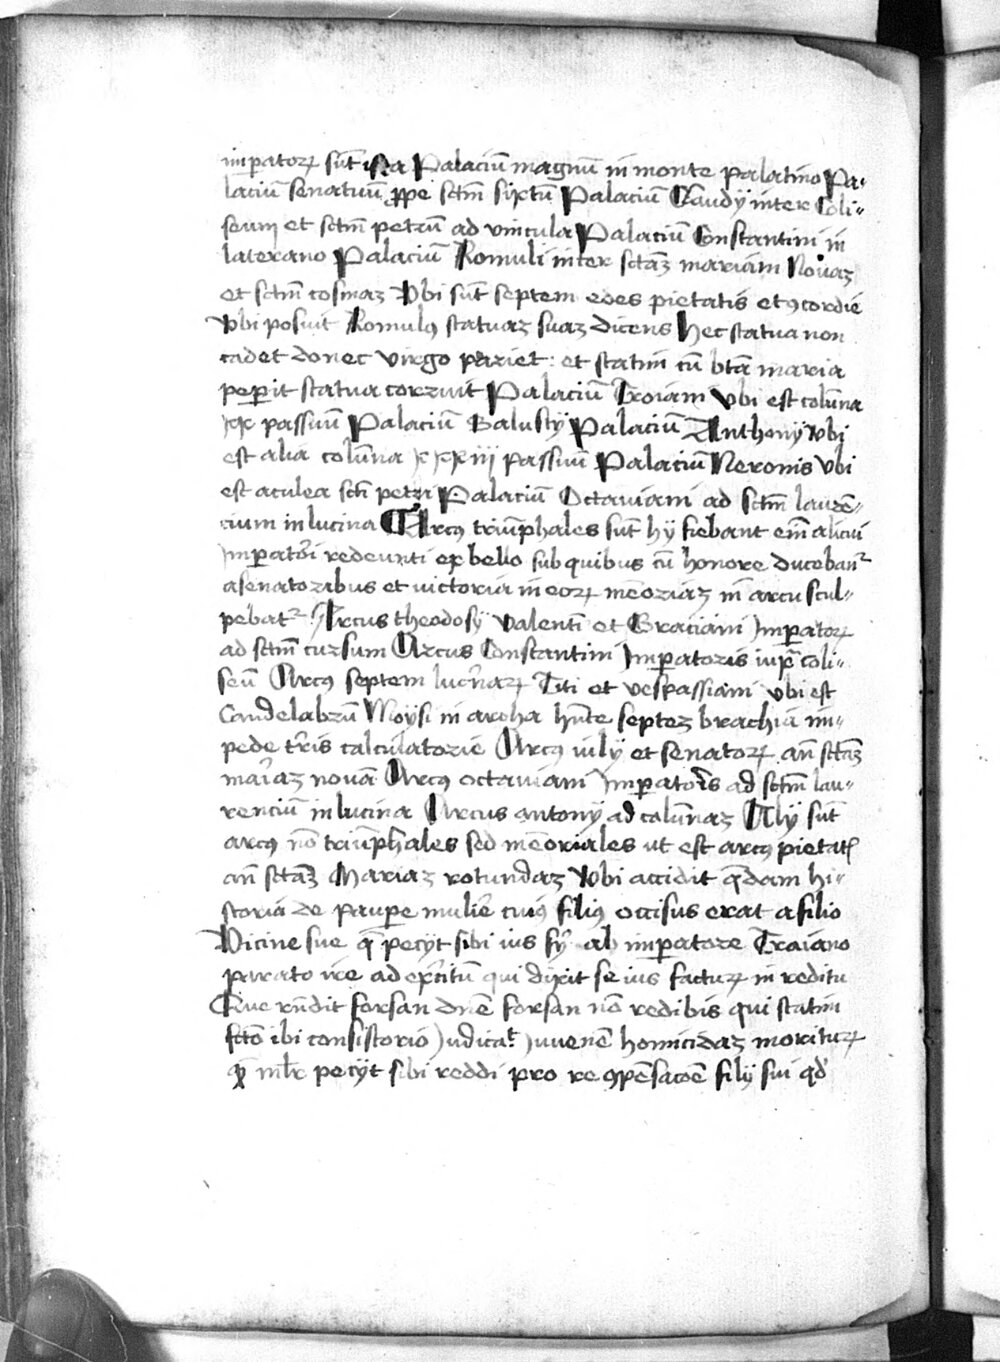 imperatorꝝ sūt ista Palaciū magnū in monte palatino Pa-
laciū senatuū ꝓpe sctm̄ sixtū Palaciū Claudij inter Coli-
seum et sctm̄ petrū ad vincula Palaciū Constantini in
laterano Palaciū Romuli inter sctāʒ mariam Nouaʒ
et sctm̄ cosmaʒ Vbi sūt septem edes pietatis et ꝯcordie
Vbi posuit Romulꝯ statuaʒ suaʒ dicens Hec statua non
cadet donec virgo pariet : et statim cū btā maria
peꝑit statua corruit Palaciū Troiani vbi est colūna
xx passuū Palaciū Balustij Palaciū Anthonij vbi
est alia colūna xxxiij passuū Palaciū Neronis vbi
est aculea scti petri Palaciū Octauiani ad sctm̄ laurē-
cium in lucina Arcꝯ triūphales sūt hij fiebant em̄ alicui
Imperatori redeunti ex bello sub quibus cū honore ducebant᷑
a senatoribus et victoria in eorꝝ memoriaʒ in arcu scul-
pebat᷑ Arcus theodosij valenti et Graciani Imperatorꝝ
ad sctm̄ cursum Arcus Constantini Imperatoris iuxᵃ coli-
seū Arcꝯ septem lucernarꝝ Titi et vespassiani vbi est
Candelabrū Moysi in archa hn̄te septeʒ brachia in
pede tr̄ris calculatorie Arcꝯ iulij et senatorꝝ an̄ sctāʒ
mariaʒ nouā Arcꝯ octauiani Imperatoris ad sctm̄ lau-
renciū in lucina Arcus antonij ad colūnaʒ Alij sūt
arcꝯ nō triūphales sed memoriales ut est arcꝯ pietatꝭ
an̄ sctāʒ Mariaʒ rotundaʒ Vbi accidit qͣdam hi-
storia de paupere mulie᷑ cuiꝯ filiꝯ occisus erat a filio
Vicine sue q̄ pecijt sibi ius fy᷑ ab imperatore Traiano
parato ire ad ex͛citū qui dixit se ius facturꝝ in reditu
Cui rn̄dit forsan dn̄e forsan nō redibis qui statim
fctō ibi consistorio Iudicat Iuuenē homicidaʒ moriturꝝ
qͫ ml̄r pecijt sibi reddi pro reꝯpensacōe filij sui qd̛